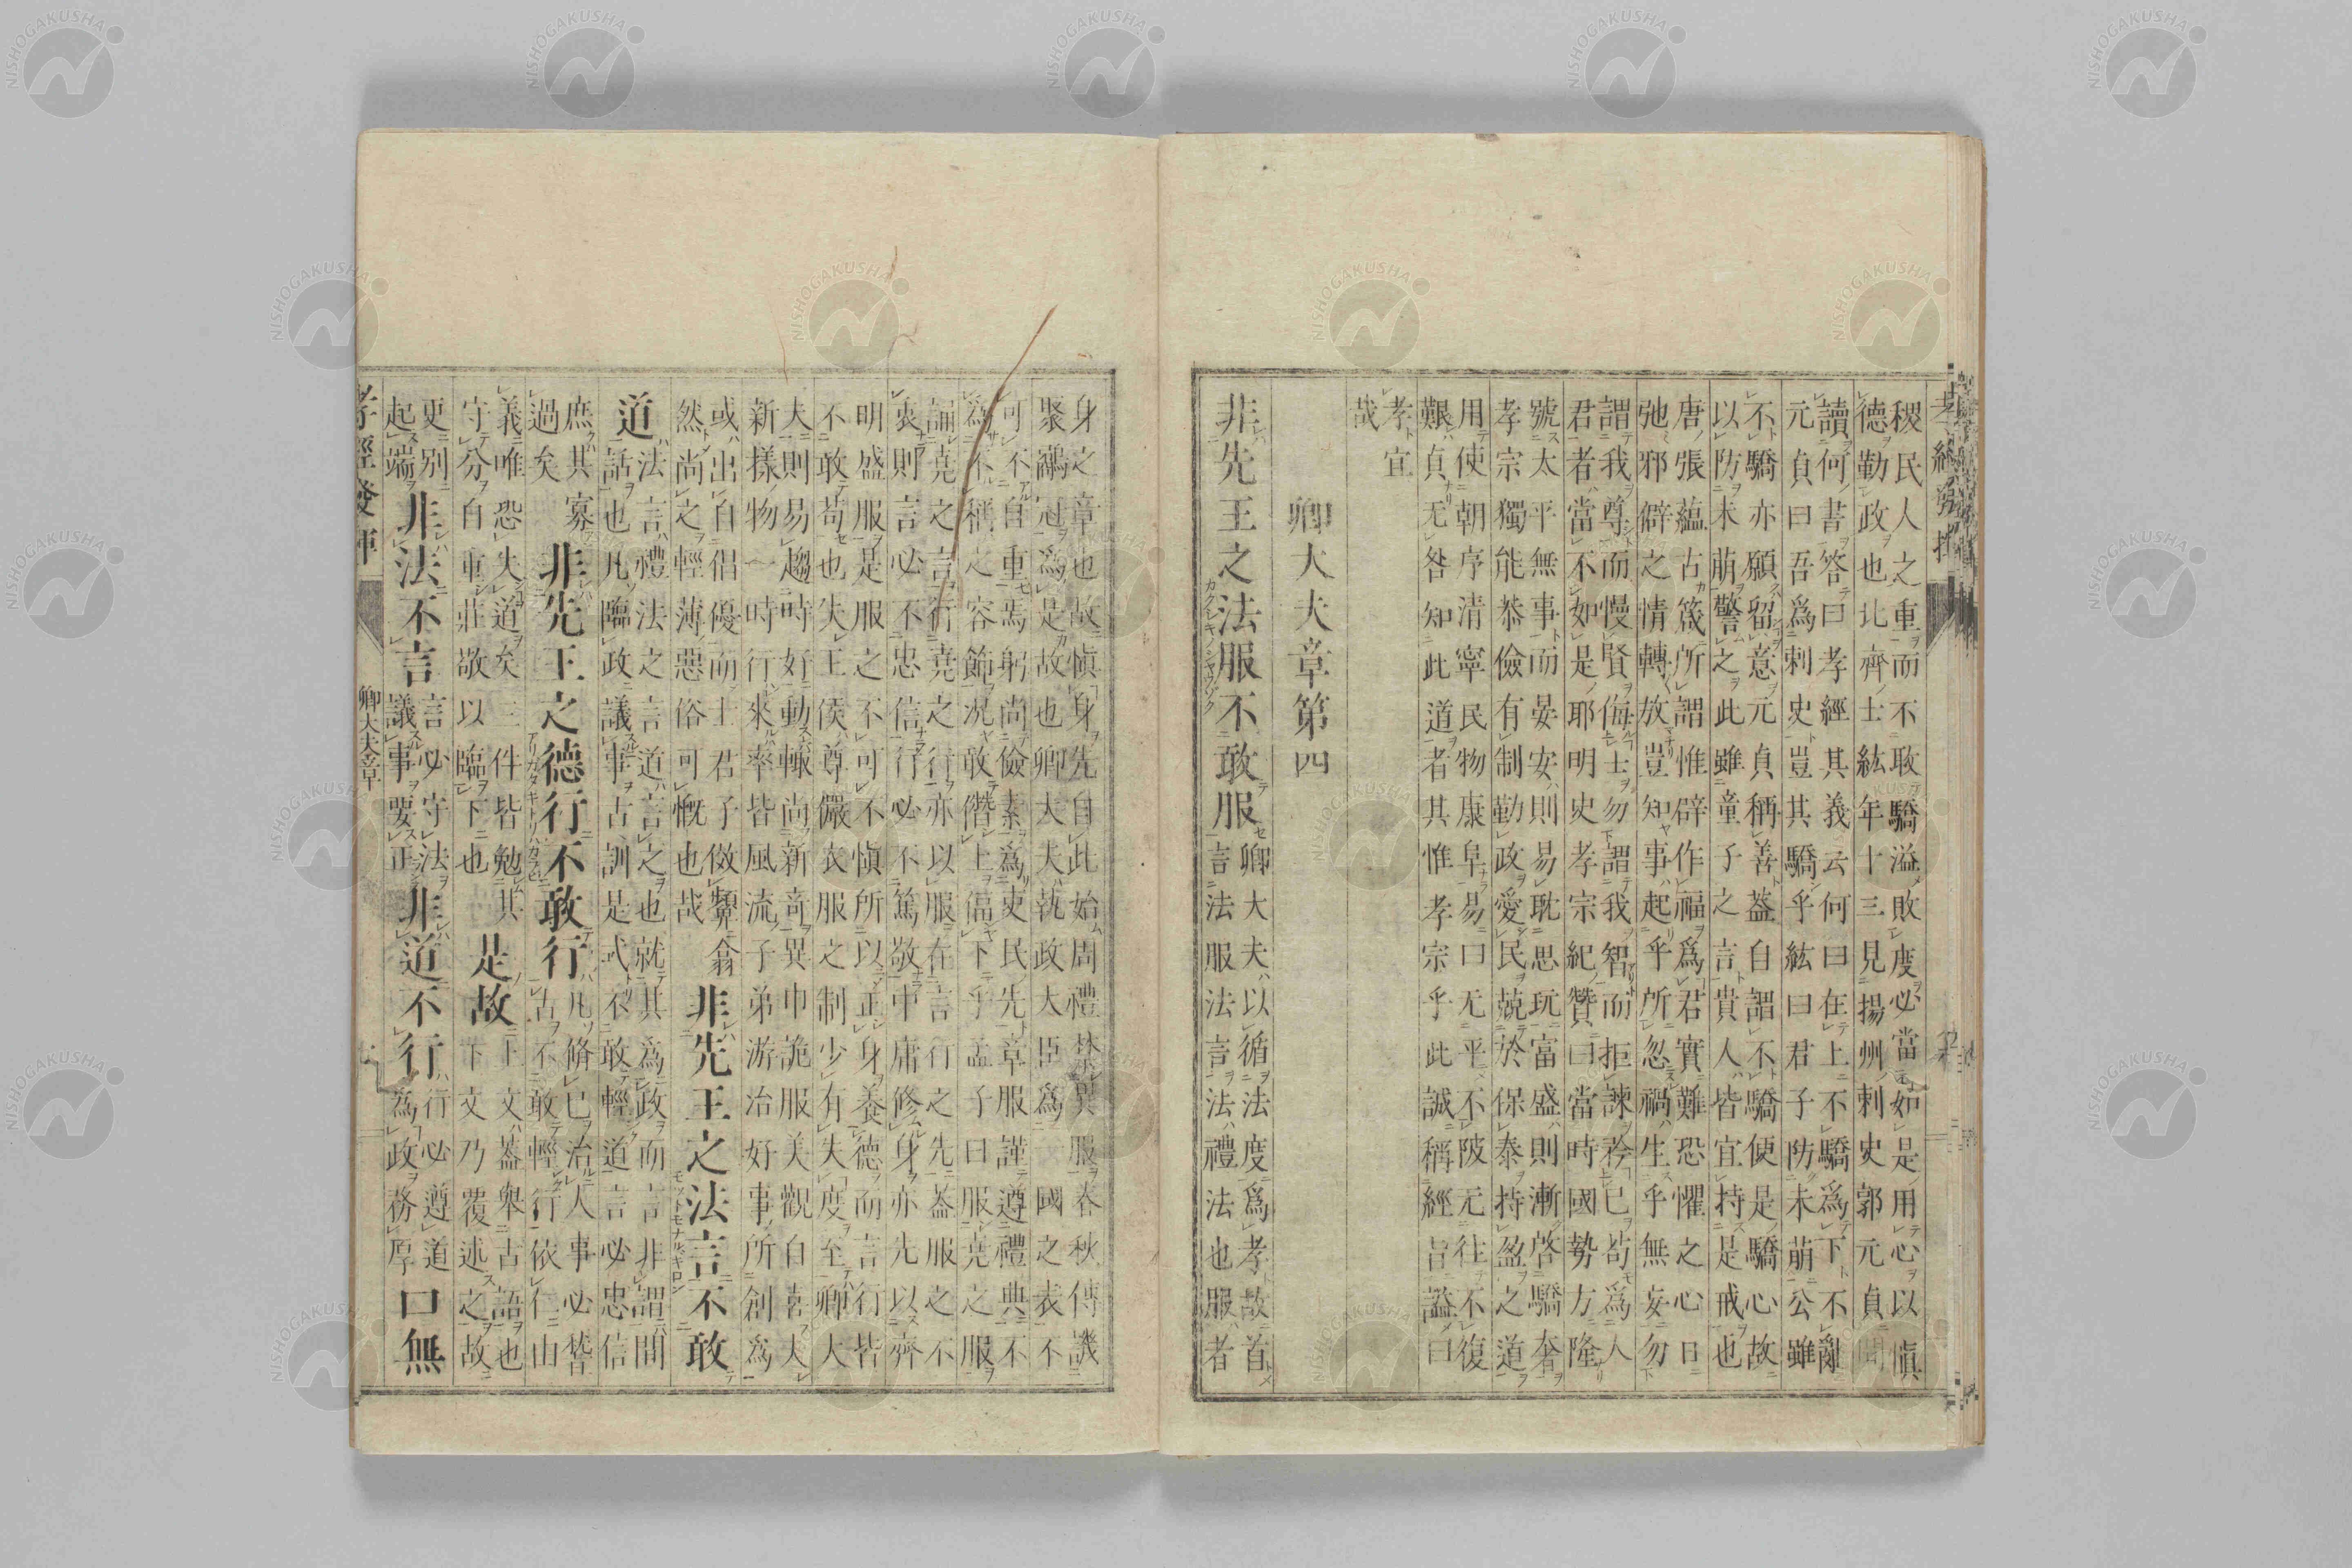 稷民人之重而不敢驕溢敗度必當如是用心以愼
德勤政也北齊士紘年十三見揚州刺史郭元貞問
讀何書答曰孝經其義云何曰在上不驕爲下不亂
元貞曰吾爲刺史豈其驕乎紘曰君子防未萌公雖
不驕亦願留意元貞稱善葢自謂不驕便是驕心故
以防未萌警之此雖童子之言貴人皆宜持是戒也
唐張蘊古箴所謂惟辟作福爲君實難恐懼之心日
弛邪僻之情轉放豈知事起乎所忽禍生乎無妄勿
謂我尊而慢賢侮士勿謂我智而拒諫矜已苟爲人
君者當不如是耶明史孝宗紀贊曰當時國勢方隆
號太平無事而晏安則易耽思玩富盛則漸啓驕奢
孝宗獨能恭儉有制勤政愛民兢於保泰持盈之道
用使朝序清寧民物康阜易曰无平不陂无往不復
艱貞无咎知此道者其惟孝宗乎此誠稱經旨謚曰
孝宜
哉
卿大夫章第四
非先王之法服不敢服
卿大夫以循法度爲孝故首
言法服法言法禮法也服者
身之章也故愼身先自此始周禮禁異服春秋傳譏
聚鷸冠爲是故也卿大夫執政大臣爲一國之表不
可不自重焉躬尚儉素爲吏民先章服謹遵禮典不
為不稱之容節况敢僭上偪下乎孟子曰服堯之服
誦堯之言行堯之行亦以服在言行之先葢服之不
衷則言必不忠信行必不篤敬中庸修身亦先以齊
明盛服是服之不可不愼所以正身養德而言行皆
不敢苟也失王侯尊儼衣服之制少有失度至卿大
夫則易趨時好動輙尚新奇異巾詭服美觀自喜夫
新樣物一時行來率皆風流子弟游冶好事所創爲
或出自倡優而士君子傚顰
然尚之輕薄惡俗可慨也哉
翁
非先王之法言不敢
道
法言禮法之言道言之也就其為政而言非謂間
話也凡臨政議事古訓是式不敢輕道言必忠信
庶其寡
過矣
非先王之德行不敢行
凡脩已治人事必皆
古不敢輕行一依仁由
義唯恐失道矣三件皆勉其
守分自重莊敬以臨下也
是故
上文葢舉古語也
下文乃覆述之故
更別
起端
非法不言
言必守法
議事要正
非道不行
行必遵道
為政務厚
口無
卿大夫章